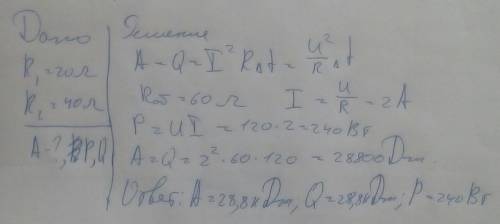 Дано
R₁=20Ω
R₂=40Ω
A-?, P, Q
Решение
A=Q=I²RΔt=U²/R Δt
Rоб=60Ω I=U/R=2A
P=UI=120·2=240Вт
A=Q=2²·60·120=28800Дж.
Ответ: A=28,8кДж, Q=28,8кДж; P=240Вт